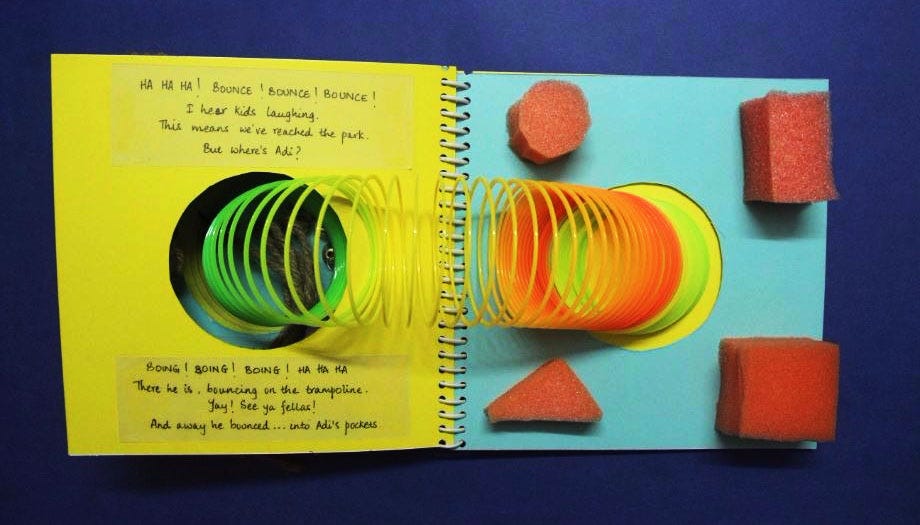 HA HA HA! BOUNCE! BOUNCE! BOUNCE!
I hear kids laughing.
This means we've reached the park.
But where's Adi?
BOING! BOING! BOING! HA HA HA
There he is, bouncing on the trampoline.
Yay! See ya fellas!
And away he bounced... into Adi's pockets.